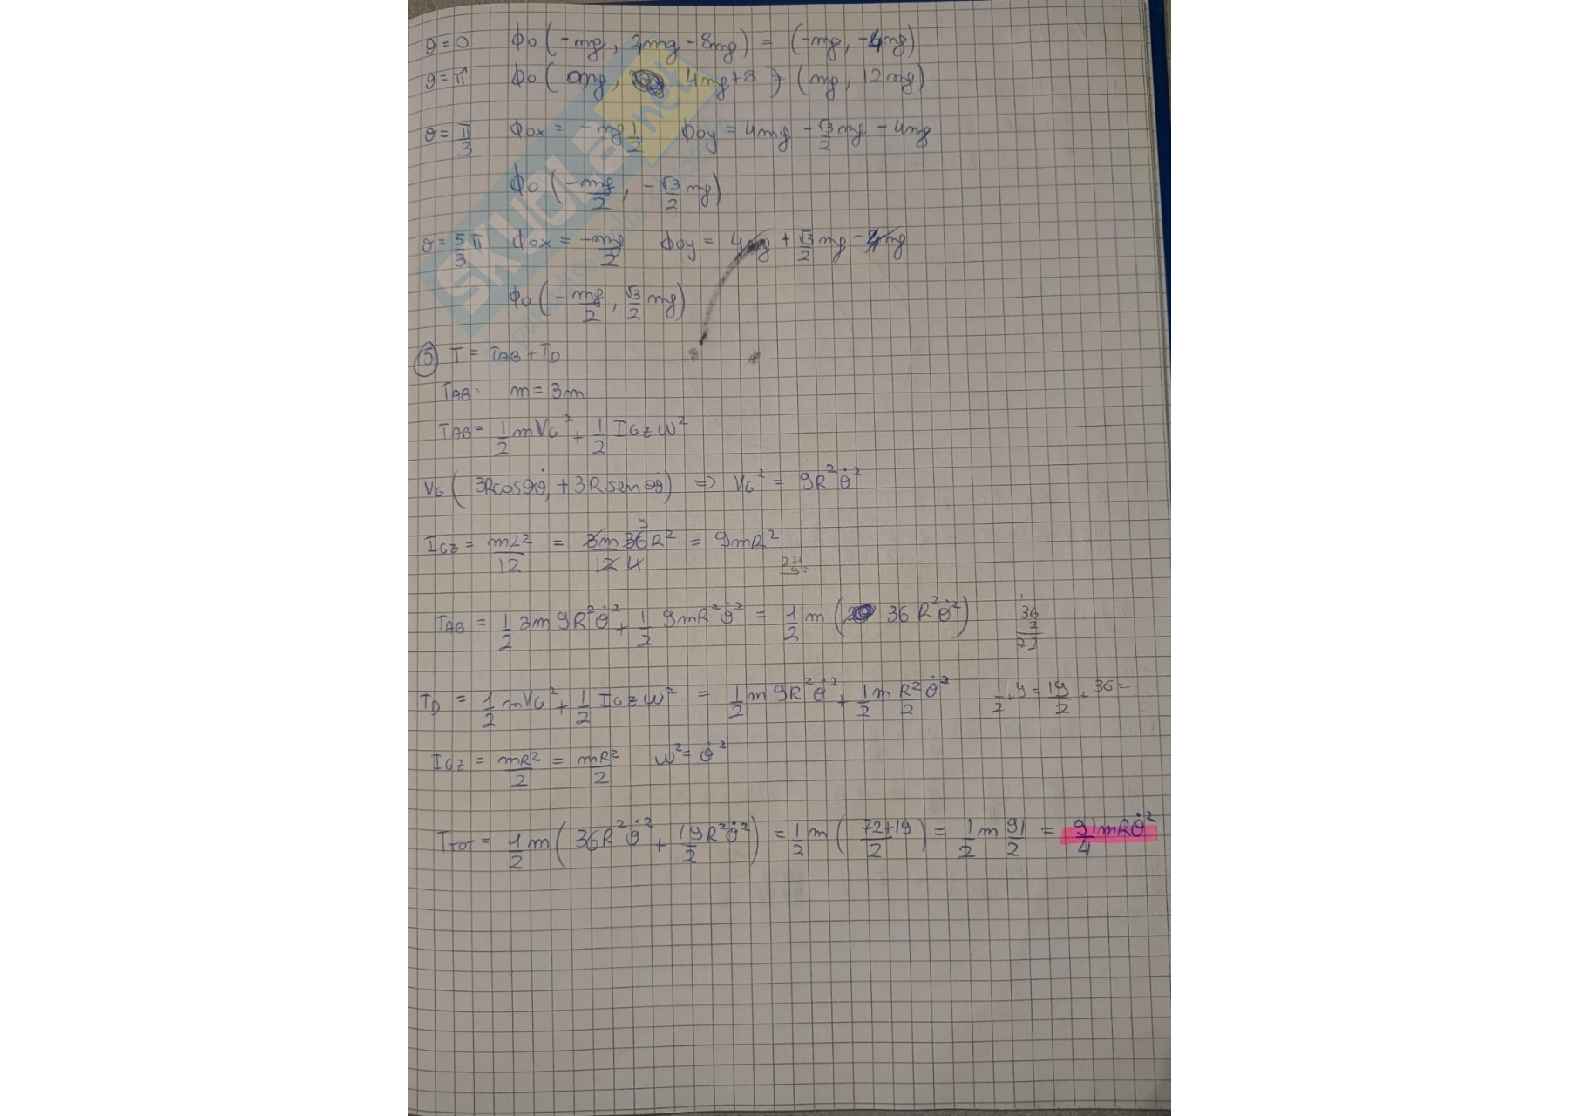 θ=0 ϕo(-mg, 4mg-8mg) = (-mg, -4mg)
θ=π ϕo( mg, 4mg+8 ) (mg, 12mg)
θ=π/3 ϕox = -mg 1/2 ϕoy = 4mg - √3/2 mg - 4mg
ϕo(-mg/2, -√3/2 mg)
θ=5/3 π ϕox = -mg/2 ϕoy = 4mg + √3/2 mg - 4mg
ϕo(-mg/2, √3/2 mg)
5) T = TAB + TD
TAB: m = 3m
TAB = 1/2 mVG² + 1/2 IGz ω²
VG (3R cosθ θ̇, +3R senθ θ̇) ⇒ VG² = 9R²θ̇²
IGz = mL²/12 = 3m 36R²/12 4 = 9mR²
TAB = 1/2 3m 9R²θ̇² + 1/2 9mR²θ̇² = 1/2 m ( 36R²θ̇²)
TD = 1/2 mVG² + 1/2 IGz ω² = 1/2 m 9R²θ̇² + 1/2 m R²/2 θ̇²
IGz = mR²/2 = mR²/2 ω² = θ̇²
TTOT = 1/2 m(36R²θ̇² + 19/2 R²θ̇²) = 1/2 m (72+19/2) = 1/2 m 91/2 = 91/4 mRθ̇²
SKUOLA.net